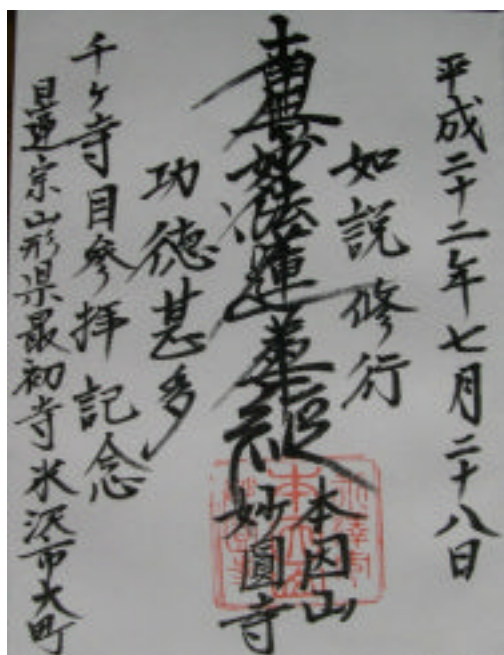 平成二十二年七月二十八日
如説修行
南無妙法蓮華経
本因山
妙圓寺
功徳甚多
千ヶ寺目参拝記念
日蓮宗山形県最初寺米沢市大町